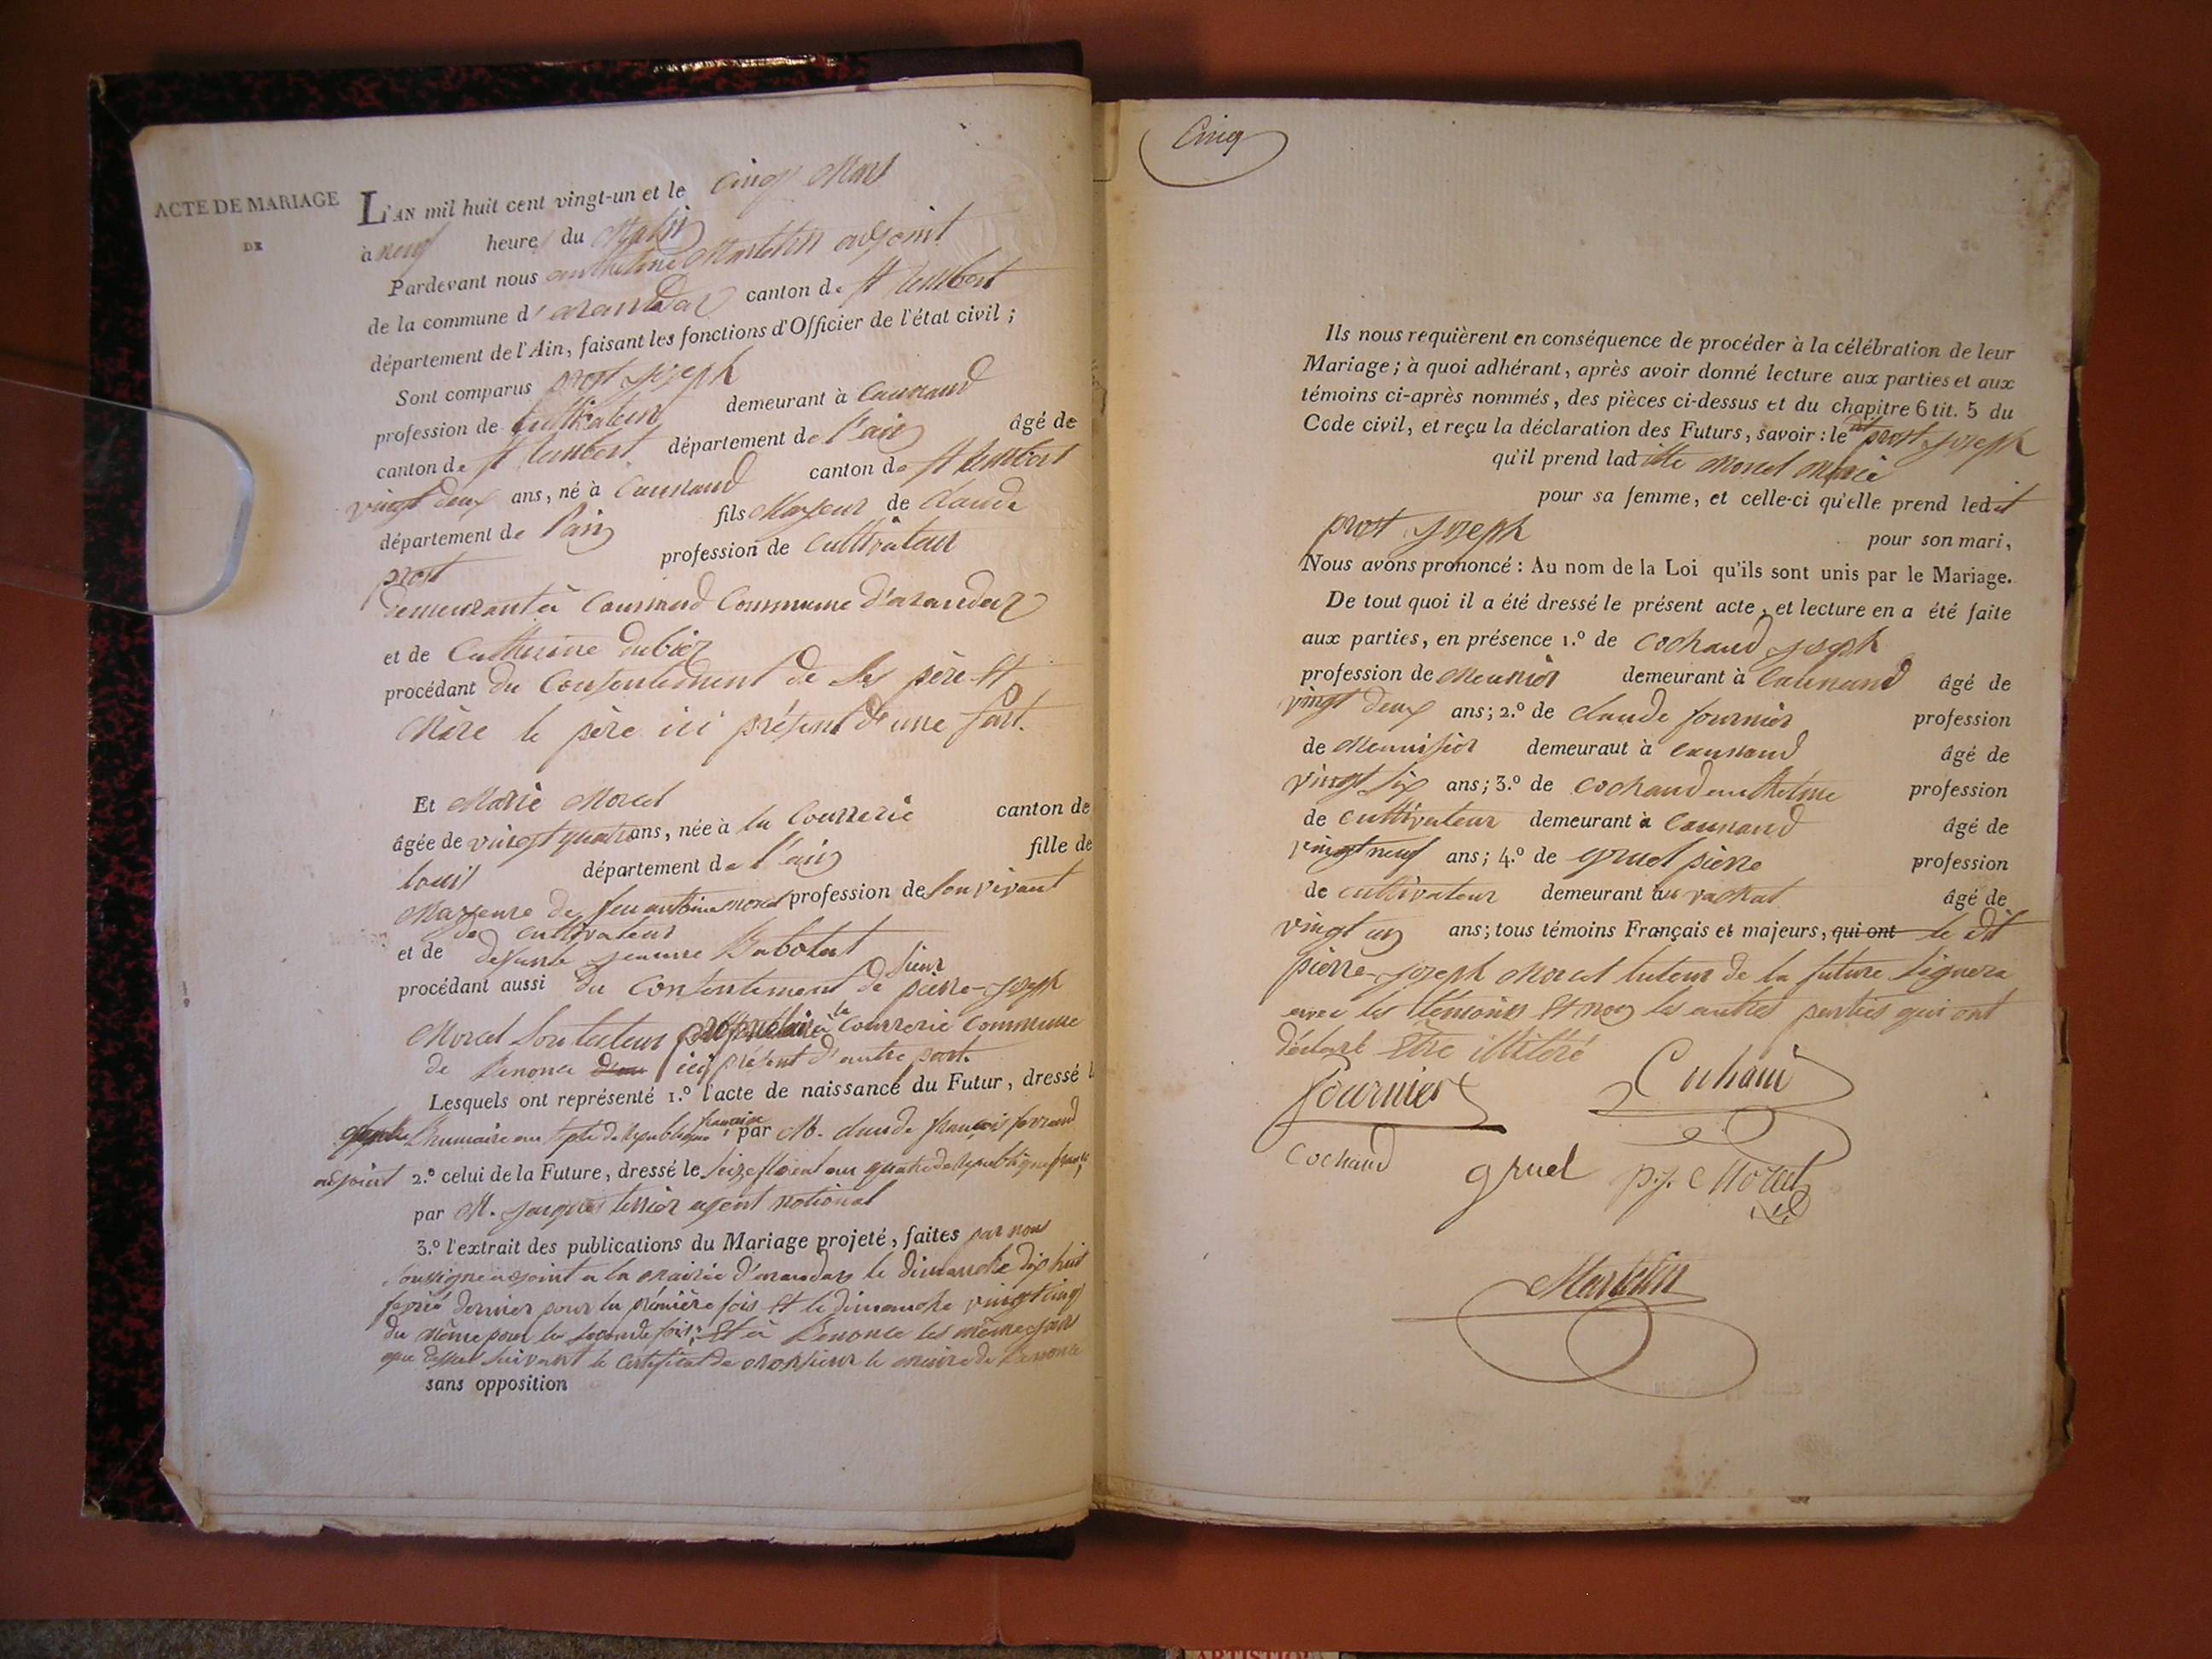 ACTE DE MARIAGE
DE
L'AN mil huit cent vingt-un et le cinq Mars
à neuf heures du Matin
Pardevant nous anthelme Martelin adjoint
de la commune d'arandas canton de St Rambert
département de l'Ain, faisant les fonctions d'Officier de l'état civil ;
Sont comparus prost Joseph
profession de Cultivateur demeurant à
canton de St Rambert département de l'ain âgé de
vingt deux ans, né à canton de St Rambert
département de l'ain fils Majeur de claude
prost profession de cultivateur
demeurant à Commune d'arandas
et de Catherine dubiez
procédant du Consentement de ses père et
Mère le père ici présent d'une part.
Et Marie Morel
âgée de vingt quatre ans, née à la Courrerie canton de
département de l'ain fille de
Majeure de feu antoine morel profession de son vivant
de cultivateur
et de defunte jeanne
procédant aussi du Consentement de sieur pierre-Joseph
Morel son tuteur propriétaire à la Courrerie Commune
de Benonce ici présent d'autre part.
Lesquels ont représenté 1.º l'acte de naissance du Futur, dressé l
Brumaire an sept de Republique francaise, par M. claude françois ferrand
adjoint 2.º celui de la Future, dressé le seize floreal an quatre de Republique franc
par M. jacques tessier agent national
3.º l'extrait des publications du Mariage projeté, faites par nous
soussigné adjoint a la mairie d'arandas le dimanche dix huit
fevrié dernier pour la première fois et le dimanche vingt cinq
du même pour la seconde fois; et à Benonce les même jour
que dessus suivant le certificat de monsieur le maire de Benonce
sans opposition
Cinq
Ils nous requièrent en conséquence de procéder à la célébration de leur
Mariage ; à quoi adhérant, après avoir donné lecture aux parties et aux
témoins ci-après nommés, des pièces ci-dessus et du chapitre 6 tit. 5 du
Code civil, et reçu la déclaration des Futurs, savoir : le dit prost Joseph
qu'il prend ladite Morel Marie
pour sa femme, et celle-ci qu'elle prend ledit
prost Joseph pour son mari,
Nous avons prononcé : Au nom de la Loi qu'ils sont unis par le Mariage.
De tout quoi il a été dressé le présent acte, et lecture en a été faite
aux parties, en présence 1.º de Cochaud joseph
profession de Meunier demeurant à âgé de
vingt deux ans ; 2.º de claude fournier profession
de Menuisier demeuraut à âgé de
vingt six ans ; 3.º de cochaud anthelme profession
de cultivateur demeurant à âgé de
vingt neuf ans ; 4.º de gruel pierre profession
de cultivateur demeurant au vachat âgé de
vingt un ans ; tous témoins Français et majeurs, qui ont le dit
pierre-joseph Morel tuteur de la future signera
avec les témoins et non les autres parties qui ont
déclaré être illitéré
Fournier Cochaud
Cochaud gruel p.j. Morel
Martelin